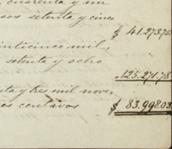 cuarenta y un
sos setenta y cinco
$ 41.273.75
inticinco mil,
setenta y ocho
125.271.78
ta y tres mil nove
es centavos $ 83.998.03